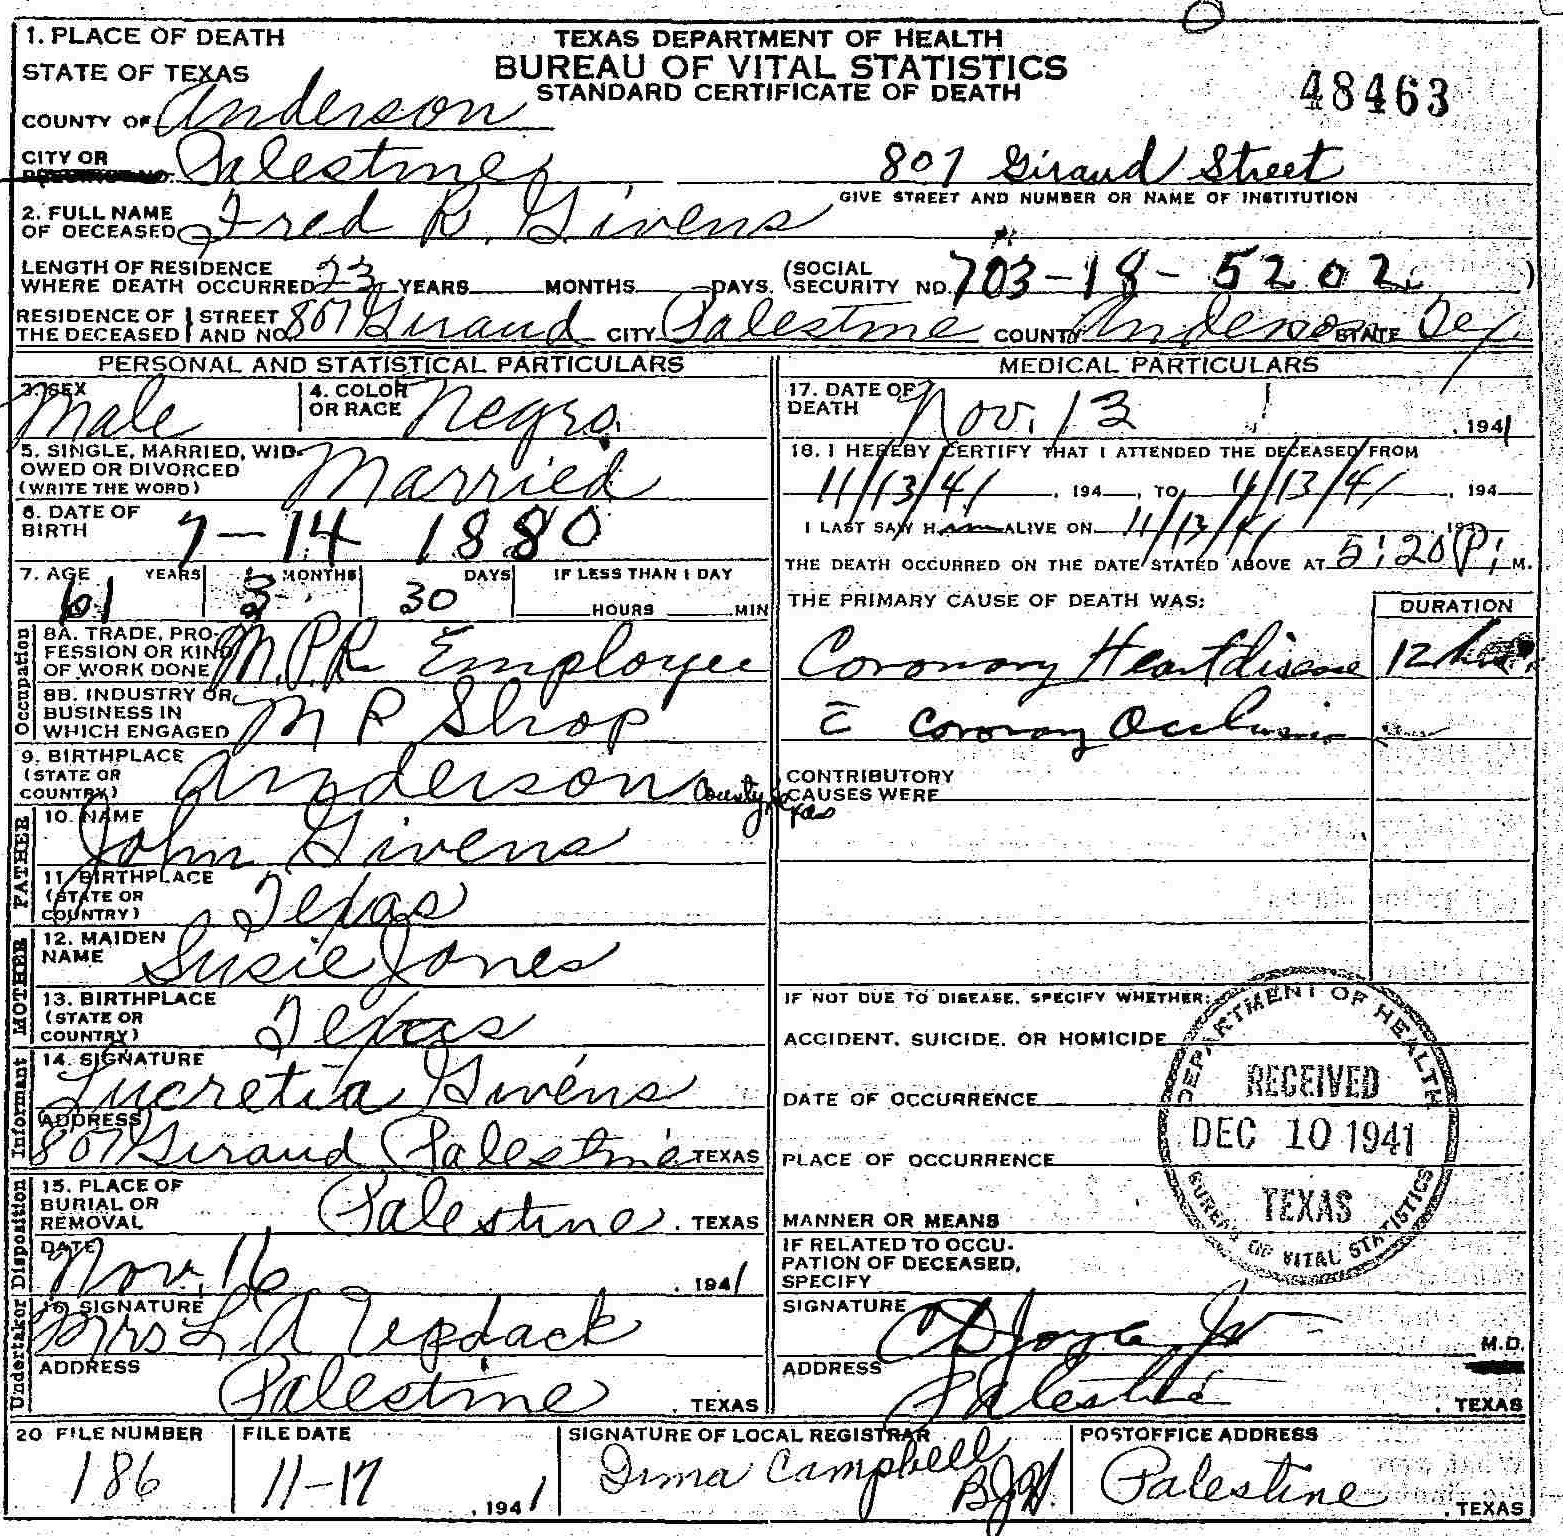 1. PLACE OF DEATH
STATE OF TEXAS
TEXAS DEPARTMENT OF HEALTH
BUREAU OF VITAL STATISTICS
STANDARD CERTIFICATE OF DEATH
48463
COUNTY OF Anderson
CITY OR Palestine
807 Giraud Street
GIVE STREET AND NUMBER OR NAME OF INSTITUTION
2. FULL NAME OF DECEASED Fred R. Givens
LENGTH OF RESIDENCE WHERE DEATH OCCURRED 23 YEARS MONTHS DAYS. (SOCIAL SECURITY NO. 703-18-5202)
RESIDENCE OF THE DECEASED STREET AND NO. 807 Giraud CITY Palestine COUNTY Anderson STATE Tex
PERSONAL AND STATISTICAL PARTICULARS
3. SEX Male
4. COLOR OR RACE Negro
5. SINGLE, MARRIED, WIDOWED OR DIVORCED (WRITE THE WORD) Married
6. DATE OF BIRTH 7-14 1880
7. AGE YEARS 61 3 MONTHS 30 DAYS IF LESS THAN 1 DAY HOURS MIN
Occupation
8A. TRADE, PROFESSION OR KIND OF WORK DONE M.P.R. Employee
8B. INDUSTRY OR BUSINESS IN WHICH ENGAGED M P Shop
9. BIRTHPLACE (STATE OR COUNTRY) Anderson County, Texas
FATHER
10. NAME John Givens
11. BIRTHPLACE (STATE OR COUNTRY) Texas
MOTHER
12. MAIDEN NAME Susie Jones
13. BIRTHPLACE (STATE OR COUNTRY) Texas
Informant
14. SIGNATURE Lucretia Givens
ADDRESS 807 Giraud Palestine TEXAS
Disposition
15. PLACE OF BURIAL OR REMOVAL Palestine, TEXAS
DATE Nov. 16, 1941
Undertaker
16. SIGNATURE Mrs L. A
ADDRESS Palestine, TEXAS
MEDICAL PARTICULARS
17. DATE OF DEATH Nov. 13, 1941
18. I HEREBY CERTIFY THAT I ATTENDED THE DECEASED FROM
11/13/41, 194 , TO 11/13/41, 194
I LAST SAW HIM ALIVE ON 11/13/41 194
THE DEATH OCCURRED ON THE DATE STATED ABOVE AT 5:20 P. M.
THE PRIMARY CAUSE OF DEATH WAS: DURATION
Coronary Heart disease 12 hrs.
c̄ coronary Occlusion
CONTRIBUTORY CAUSES WERE
IF NOT DUE TO DISEASE, SPECIFY WHETHER:
ACCIDENT, SUICIDE, OR HOMICIDE
DATE OF OCCURRENCE
PLACE OF OCCURRENCE
MANNER OR MEANS
IF RELATED TO OCCUPATION OF DECEASED, SPECIFY
DEPARTMENT OF HEALTH
RECEIVED
DEC 10 1941
TEXAS
BUREAU OF VITAL STATISTICS
SIGNATURE M.D.
ADDRESS Palestine, TEXAS
20 FILE NUMBER 186
FILE DATE 11-17, 1941
SIGNATURE OF LOCAL REGISTRAR Campbell
POSTOFFICE ADDRESS Palestine, TEXAS